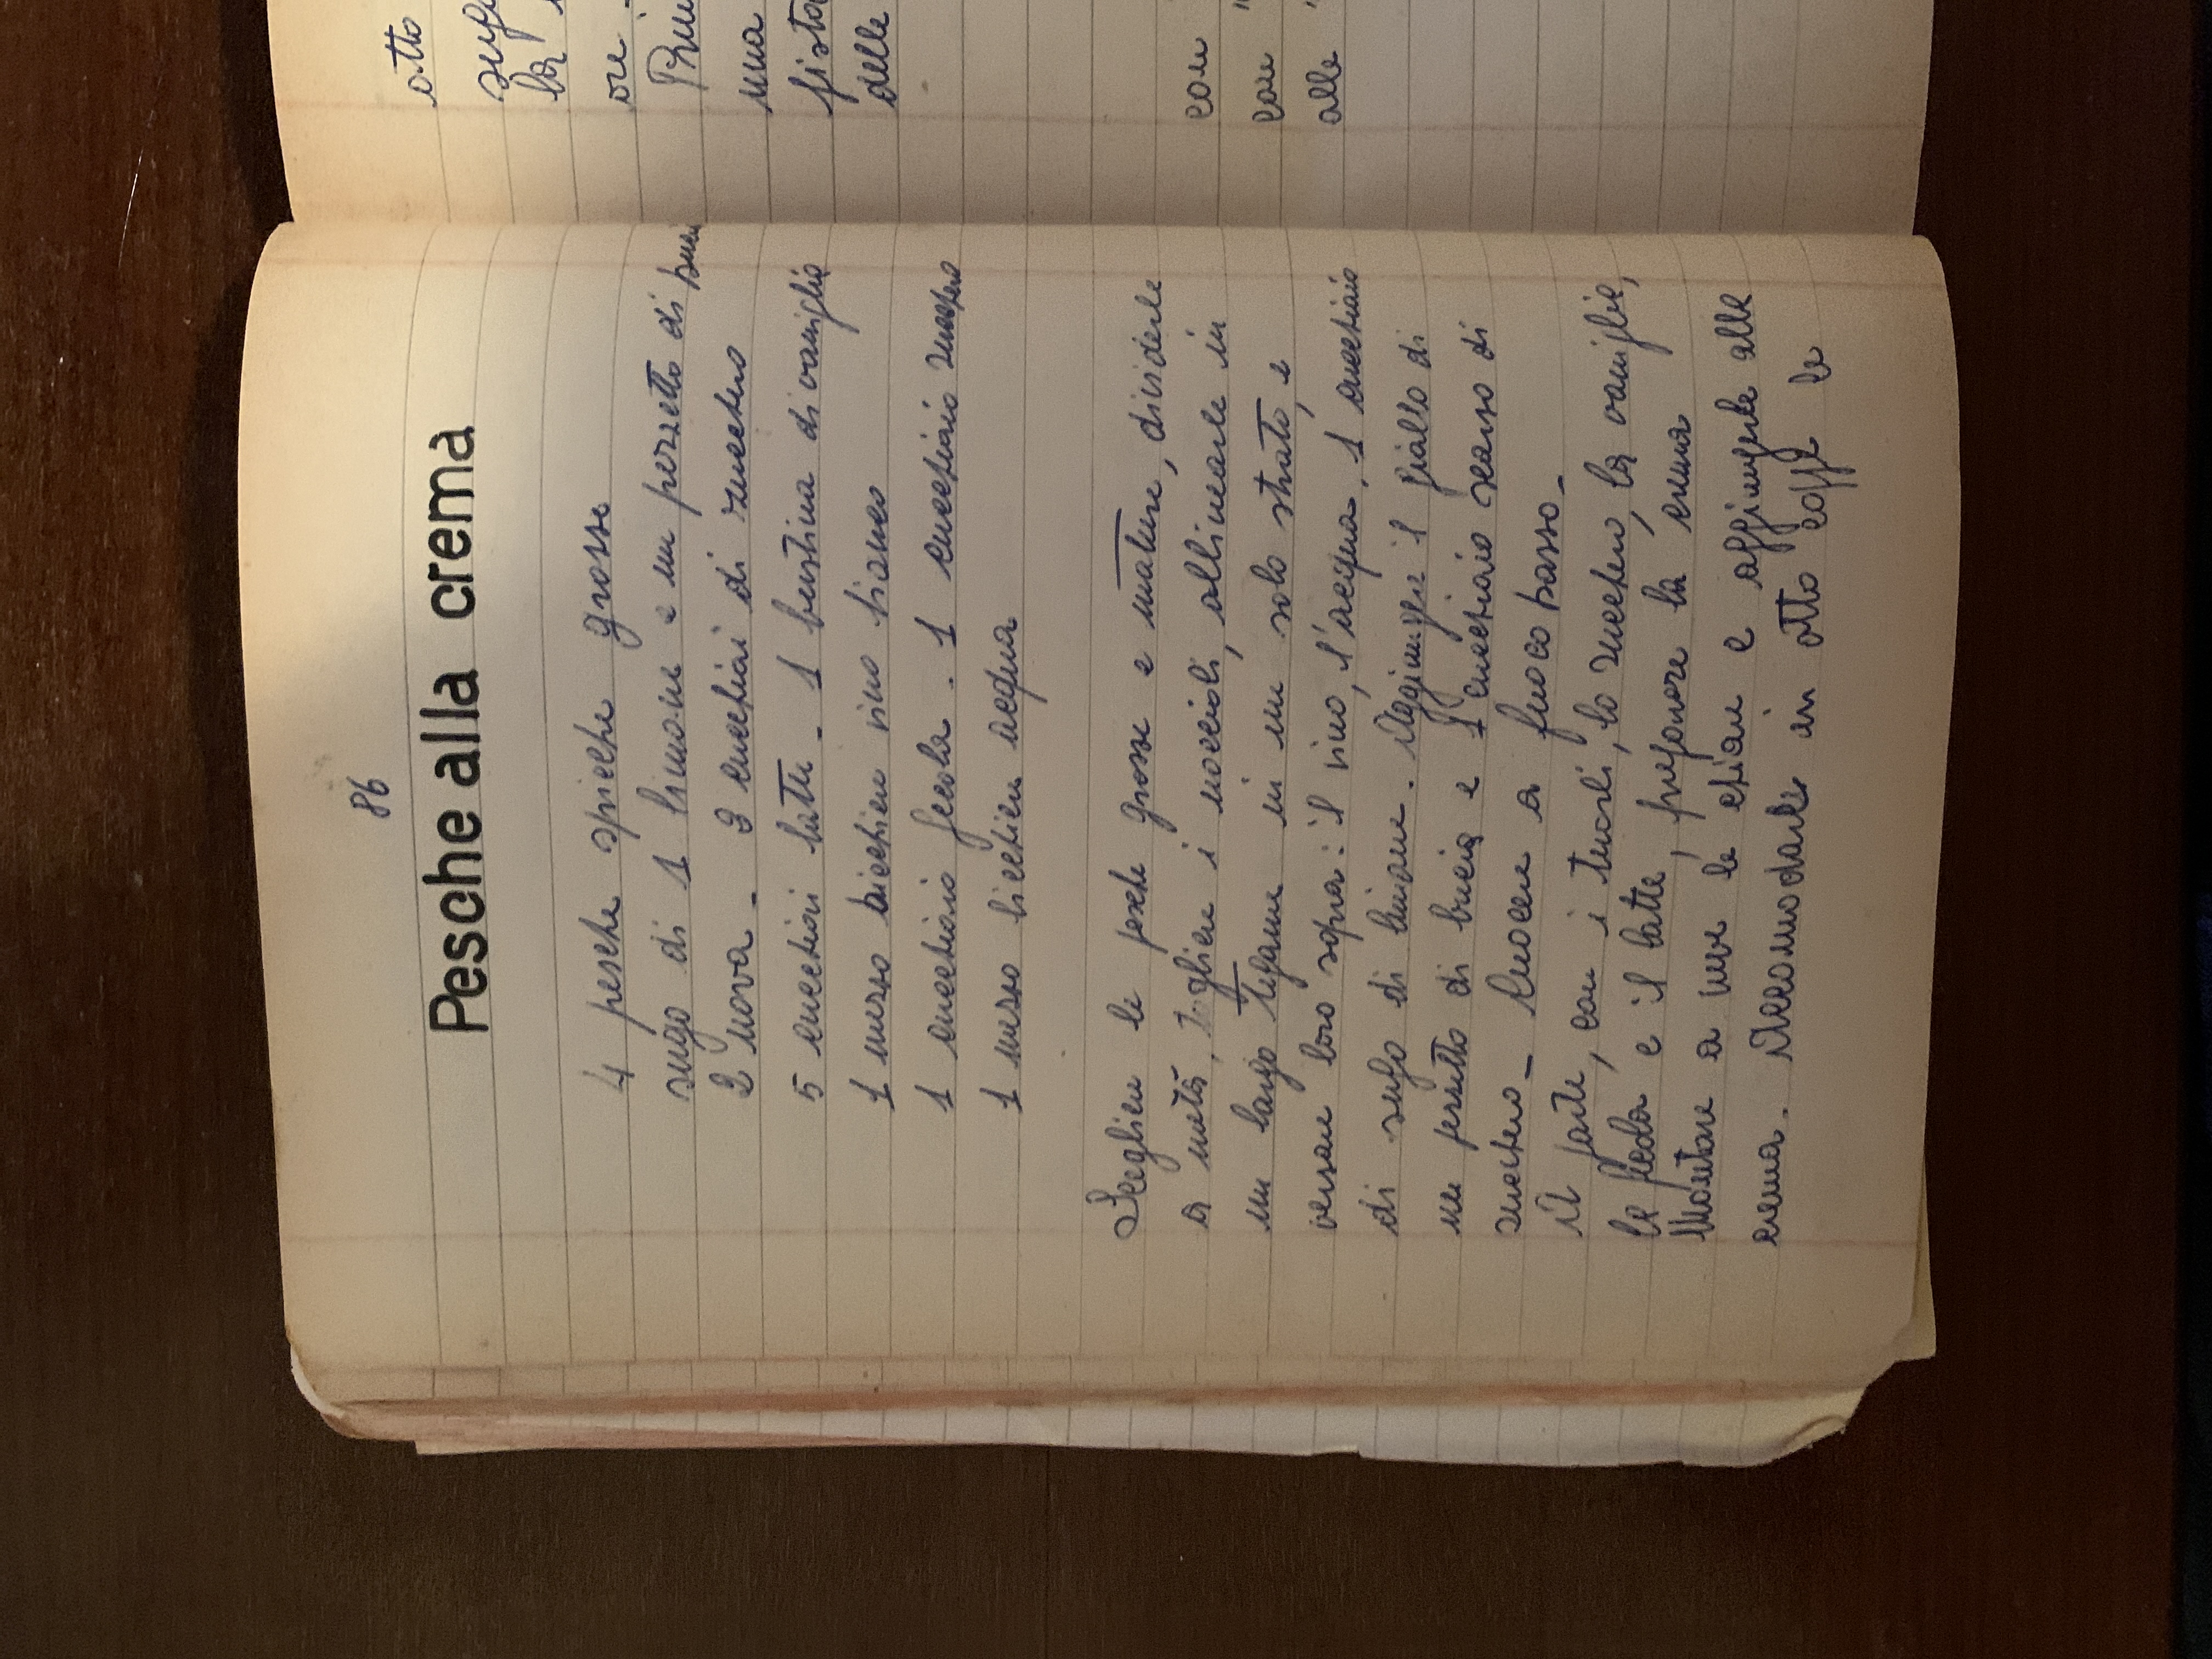 86
Pesche alla crema
4 pesche spicche grosse
sugo di 1 limone e un pezzetto di buccia
2 uova - 3 cucchiai di zucchero
5 cucchiai latte - 1 bustina di vaniglia
1 mezzo bicchiere vino bianco
1 cucchiaio fecola - 1 cucchiaio zucchero
1 mezzo bicchiere acqua
Scegliere le pesche grosse e mature, dividerle
a metà, togliere i noccioli, allinearle in
un largo tegame in un solo strato, e
versare loro sopra: il vino, l'acqua, 1 cucchiaio
di sugo di limone. Aggiungere il giallo di
un pezzetto di buccia e 1 cucchiaio scarso di
zucchero - Cuocere a fuoco basso -
A parte, con i tuorli, lo zucchero, la vaniglia,
la fecola e il latte, preparare la crema
Montare a neve le chiare e aggiungerle alla
crema. Accomodarle in otto coppe le
otto
la
ore -
una
delle
con
con "
alle "